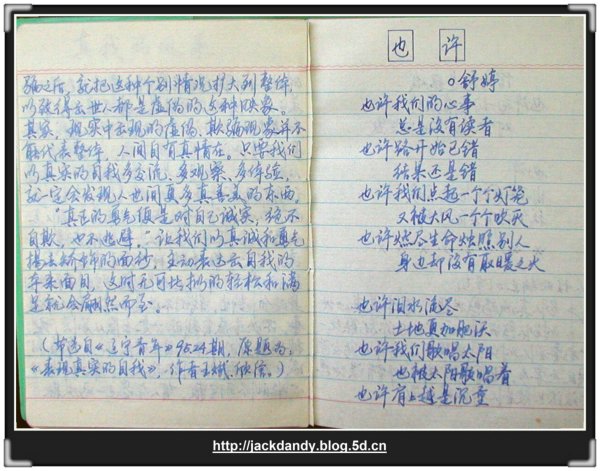 骗之后，就把这种个别情况扩大到整体，
以致得出世人都是虚伪的这种印象。
其实，现实中出现的虚伪、欺骗现象并不
能代表整体，人间自有真情在。只要我们
以真实的自我多交流、多观察、多体验，
就一定会发现人世间更多真善美的东西。
“真正的勇气便是对自己诚实，绝不
自欺，也不逃避。”让我们以真诚和勇气
揭去矫饰的面纱，主动表达出自我的
本来面目，这时无可比拟的轻松和满
足就会翩然而至。
（节选自《辽宁青年》95.24期，原题为，
《表现真实的自我》，作者王
也许
○舒婷
也许我们的心事
总是没有读者
也许路开始已错
结果还是错
也许我们点起一个个灯笼
又被大风一个个吹灭
也许燃尽生命烛照别人
身边却没有取暖之火
也许泪水流尽
土地更加肥沃
也许我们歌唱太阳
也被太阳歌唱着
也许肩上越是沉重
http://jackdandy.blog.5d.cn